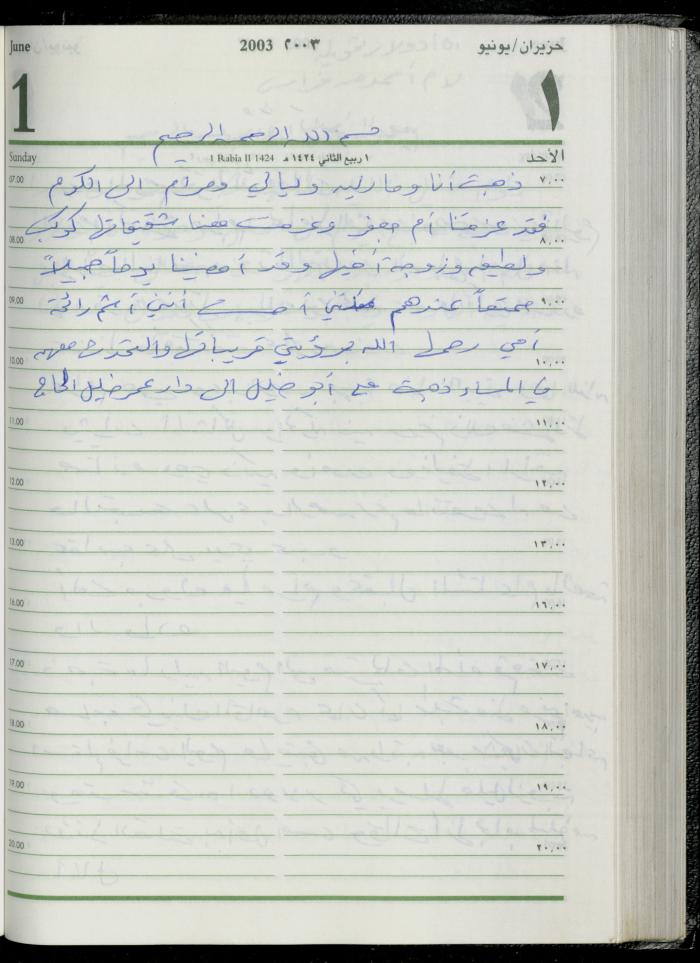 June 2003 ٢٠٠٣ حزيران/يونيو
1 ١
بسم الله الرحمن الرحيم
Sunday 1 Rabia II 1424 ١ ربيع الثاني ١٤٢٤ هـ الأحد
07.00 ذهبت أنا ومارلين وليالي ومرام الى الكوم ٧,٠٠
فقد عزمتنا أم جعفر وعزمت معنا شقيقاتها كوكب
08.00 ٨,٠٠
ولطيفه وزوجة أخيها وقد أمضينا يوماً جميلاً
09.00 ممتعاً عندهم أحسست أنني أشم رائحة ٩,٠٠
أمي رحمها الله برؤيتي قريباتها والتحدث معهم
10.00 ١٠,٠٠
في المساء ذهبت مع أبو خليل الى دار عمر خليل الحاج
11.00 ١١,٠٠
12.00 ١٢,٠٠
13.00 ١٣,٠٠
16.00 ١٦,٠٠
17.00 ١٧,٠٠
18.00 ١٨,٠٠
19.00 ١٩,٠٠
20.00 ٢٠,٠٠